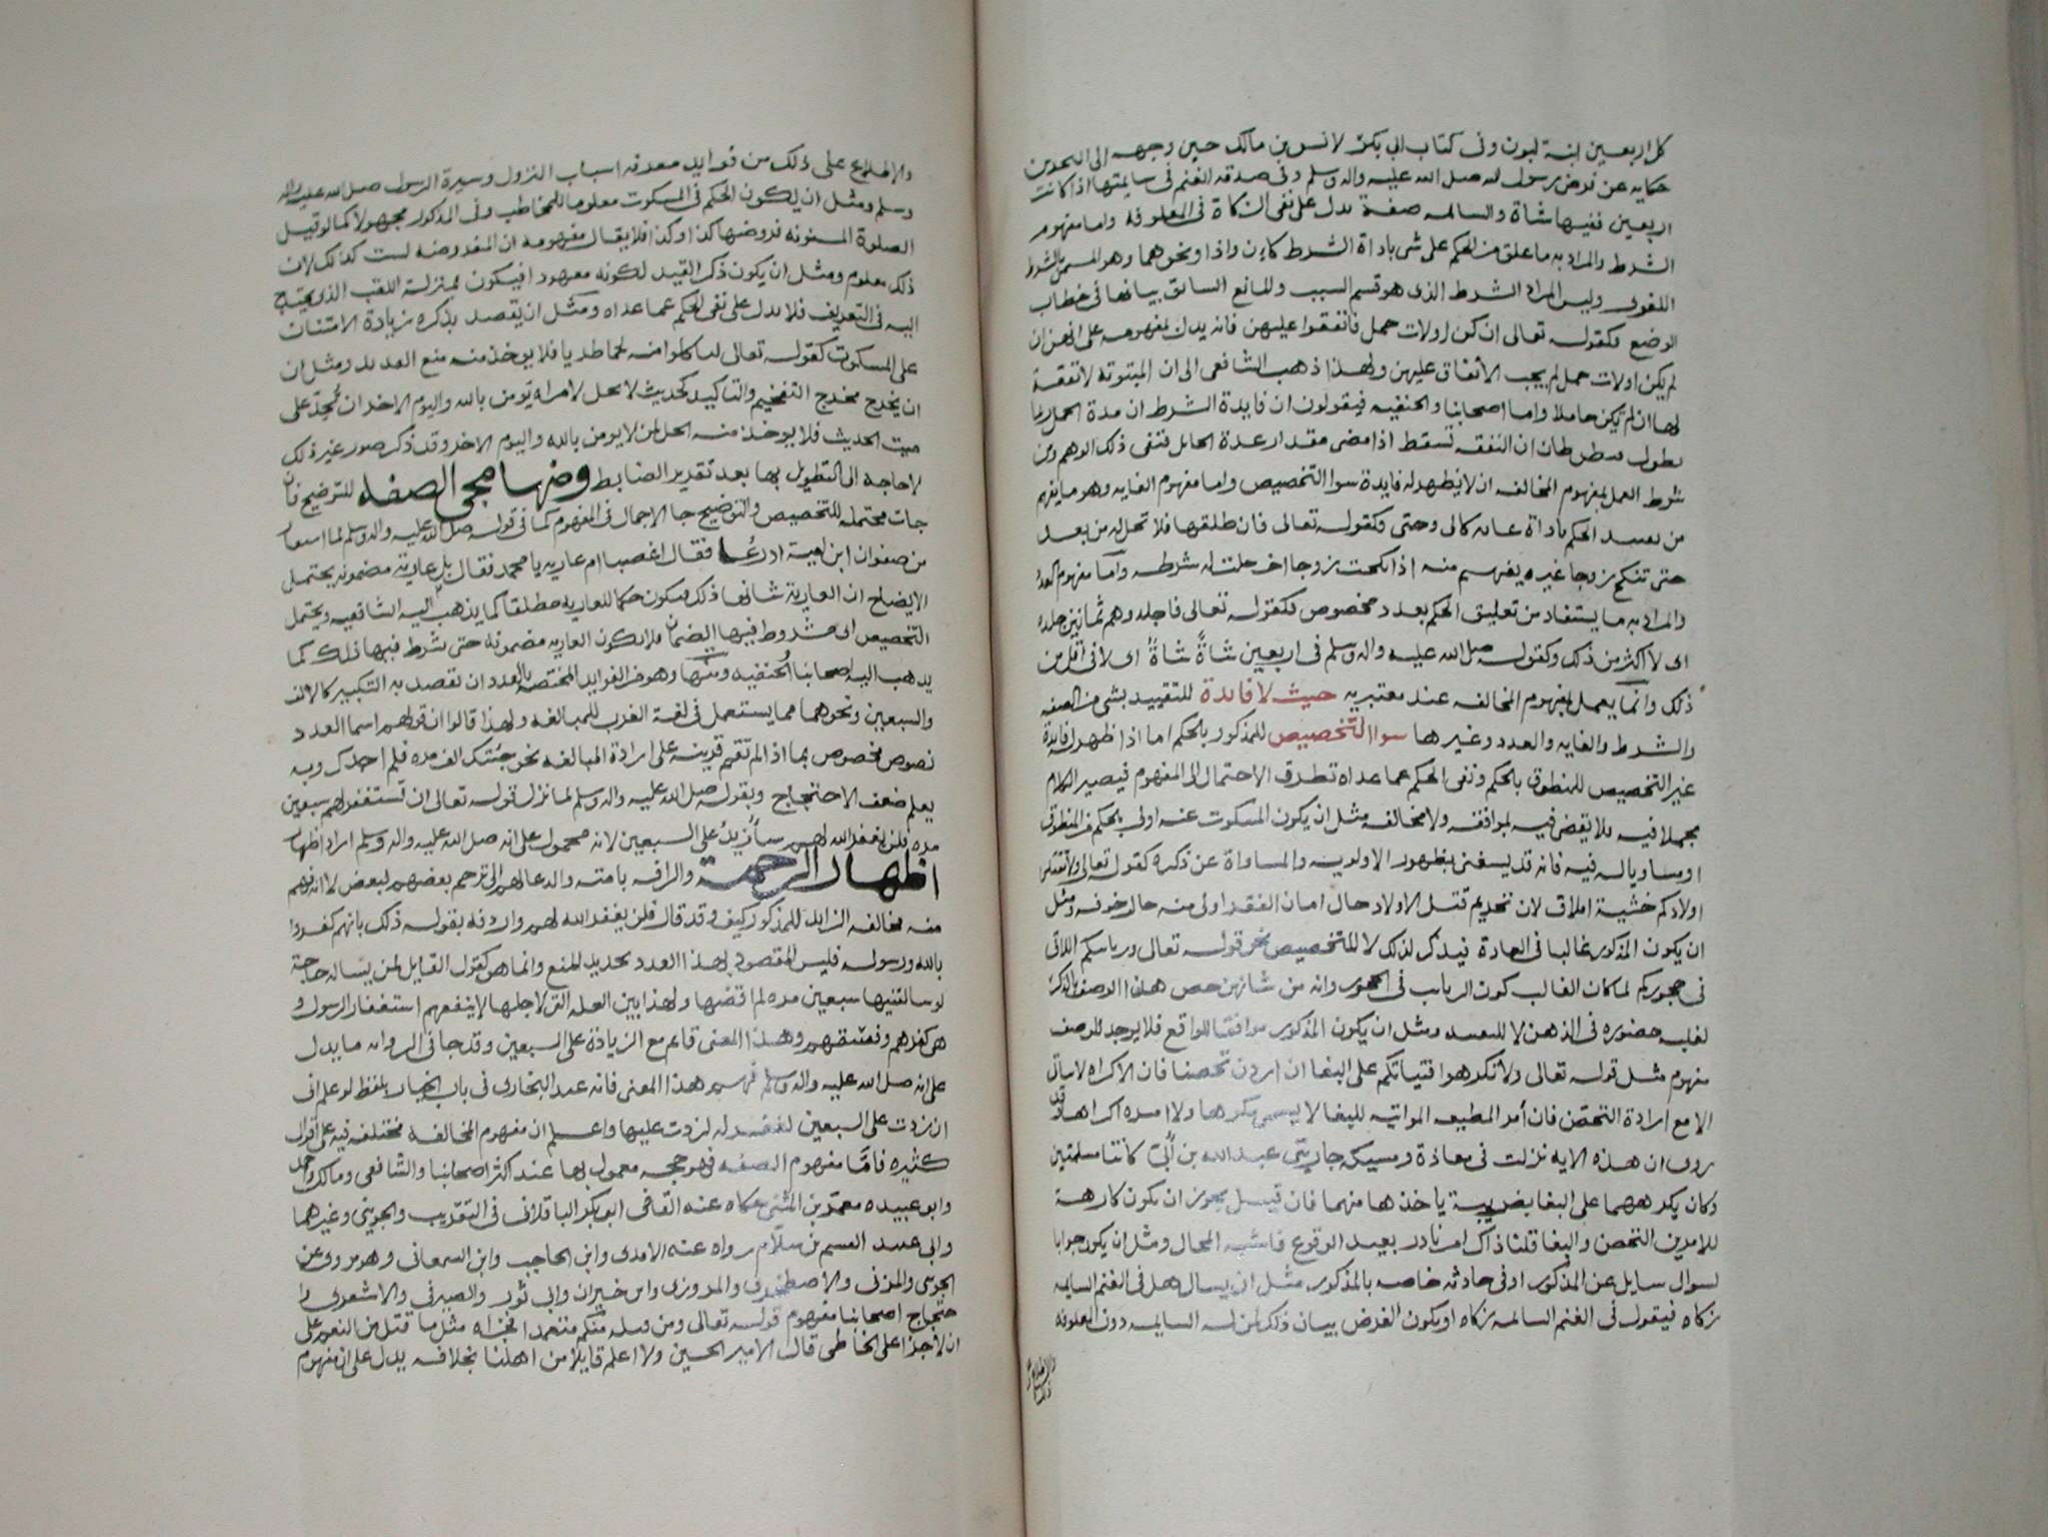 كل اربعين ابنة لبون وفى كتاب ابى بكر لانس بن مالك حين وجهه الى البحرين
حكايه عن فرض رسول الله صلى الله عليه واله وسلم وفى صدقه الغنم فى سايمتها اذا كانت
اربعين ففيها شاة والسائمه صفة يدل على نفى الزكاة فى المعلوفه واما مفهوم
الشرط والمراد به ما علق من الحكم على شى باداة الشرط كاِن واذا ونحوهما وهو المسمى بالشرط
اللغوى وليس المراد الشرط الذى هو قسيم السبب والمانع السابق بيانها فى خطاب
الوضع فكقوله تعالى ان كن اولات حمل فانفقوا عليهن فانه يدل بمفهومه على انهن ان
لم يكن اولات حمل لم يجب الانفاق عليهن ولهذا ذهب الشافعى الى ان المبتوته لا نفقة
لها ان لم تكن حاملا واما اصحابنا والحنفيه فيقولون ان فايدة الشرط ان مدة الحمل ربما
يطول فيظن ظان ان النفقه تسقط اذا مضى مقدار عدة الحايل فنفى ذلك الوهم ومن
شرط العمل بمفهوم المخالفه ان لا يظهر له فايدة سوا التخصيص واما مفهوم الغايه وهو ما يفهم
من تقييد الحكم باداة غايه كالى وحتى فكقوله تعالى فان طلقها فلا تحل له من بعد
حتى تنكح زوجا غيره يفهم منه اذا نكحت زوجا اخر حلت له بشرطه واما مفهوم العدد
والمراد به ما يستفاد من تعليق الحكم بعدد مخصوص فكقوله تعالى فاجلدوهم ثمانين جلدة
اى لا اكثر من ذلك وكقوله صلى الله عليه واله وسلم فى اربعين شاةً شاةٌ اى لا فى اقل من
ذلك وانما يعمل بمفهوم المخالفه عند معتبريه حيث لا فايدة للتقييد بشى من الصفه
والشرط والغايه والعدد وغيرها سوا التخصيص للمذكور بالحكم اما اذا ظهر له فايدة
غير التخصيص للمنطوق بالحكم ونفى الحكم عما عداه تطرق الاحتمال الى المفهوم فيصير الكلام
مجملا فيه فلا يقضى فيه بموافقه ولا مخالفه مثل ان يكون المسكوت عنه اولى بالحكم من المنطوق
او مساويا له فيه فانه قد يستغنى بظهور الاولويه والمساواة عن ذكره كقوله تعالى ولا تقتلوا
اولادكم خشية املاق لان تحريم قتل الاولاد حال امان الفقر اولى منه حال خوفه ومثل
ان يكون المذكور غالبا فى العادة فيذكر لذلك لا للتخصيص نحو قوله تعالى وربائبكم اللاتى
فى حجوركم لما كان الغالب كون الربايب فى الحجور وانه من شانهن خص هذا الوصف بالذكر
لغلبه حضوره فى الذهن لا للتقييد ومثل ان يكون المذكور موافقا للواقع فلا يوجد للوصف
مفهوم مثل قوله تعالى ولا تكرهوا فتياتكم على البغا ان اردن تحصنا فان الاكراه لا يتاتى
الا مع ارادة التحصّن فان أمر المطيعه المواتيه للبغا لا يسمى مكرها ولا امره اكراها وقد
روى ان هذه الايه نزلت فى معاذة ومسيكه جاريتى عبدالله بن أُبىّ كانتا مسلمتين
وكان يكرههما على البغا بضريبة ياخذها منهما فان قيل يجوز ان تكون كارهة
للامرين التحصن والبغا قلنا ذاك امر نادر بعيد الوقوع فاشبه المحال ومثل ان يكون جوابا
لسوال سايل عن المذكور او فى حادثه خاصه بالمذكور مثل ان يسال هل فى الغنم السايمه
زكاه فيقول فى الغنم السائمه زكاه او يكون الغرض بيان ذلك لمن له السايمه دون المعلوفه
والاطلاع على
ذلك
والاطلاع على ذلك من فوايد معرفه اسباب النزول وسيرة الرسول صلى الله عليه واله
وسلم ومثل ان يكون الحكم فى المسكوت معلوما للمخاطب وفى المذكور مجهولا كما لو قيل
الصلوة المسنونه فروضها كذا وكذا فلا يقال مفهومه ان المفروضه ليست كذلك لان
ذلك معلوم ومثل ان يكون ذكر القيد لكونه معهودا فيكون بمنزلة اللقب الذى يحتاج
اليه فى التعريف فلا يدل على نفى الحكم عما عداه ومثل ان يقصد بذكره زيادة الامتنان
على المسكوت كقوله تعالى لتاكلوا منه لحما طريا فلا يوخذ منه منع القديد ومثل ان
ان يخرج مخرج التفخيم والتاكيد كحديث لا يحل لامراه تومن بالله واليوم الاخر ان تُحِدّ على
ميت الحديث فلا يوخذ منه الحل لمن لا يومن بالله واليوم الاخر وقد ذكر صور غير ذلك
لا حاجه الى التطويل بها بعد تقرير الضابط ومنها مجى الصفه للتوضيح فان
جات محتمله للتخصيص والتوضيح جا الاجمال فى المفهوم كما فى قوله صلى الله عليه واله وسلم لما استعار
من صفوان ابن امية ادرعا فقال اغصبا ام عاريه يا محمد فقال بل عارية مضمونه يحتمل
الايضاح ان العارية شانها ذلك فيكون حكما للعاريه مطلقا كما يذهب اليه الشافعيه ويحتمل
التخصيص اى مشروط فيها الضمان فلا تكون العاريه مضمونة حتى شرط فيها ذلك كما
يذهب اليه اصحابنا والحنفيه ومنها وهو من الفوايد المختصه بالعدد ان تقصد به التكبير كالالف
والسبعين ونحوهما مما يستعمل فى لغة العرب للمبالغه ولهذا قالوا ان قولهم اسما العدد
نصوص مخصوص بما اذا لم تقم قرينه على ارادة المبالغه نحو جئتك الف مره فلم اجدك وبه
يعلم ضعف الاحتجاج وبقوله صلى الله عليه واله وسلم لما نزل قوله تعالى ان تستغفر لهم سبعين
مره فلن يغفر الله لهم سأزيد على السبعين لانه محمول على انه صلى الله عليه واله وسلم اراد اظهار
اظهار الرحمة والرافه بامته والدعا لهم الى ترحم بعضهم لبعض لا انه فهم
منه مخالفه الزايد للمذكور كيف وقد قال فلن يغفر الله لهم واردفه بقوله ذلك بانهم كفروا
بالله ورسوله فليس المقصود بهذا العدد تحديد المنع وانما هو كقول القايل لمن يساله حاجة
لو سالتنيها سبعين مره لم اقضها ولهذا بين العله التى لاجلها لا ينفعهم استغفار الرسول و
هى كفرهم وفسقهم وهذا المعنى قايم مع الزيادة على السبعين وقد جا فى الروايه ما يدل
على انه صلى الله عليه واله وسلم فهم هذا المعنى فانه عند البخارى فى باب الجنايز بلفظ لو علم انى
ان زدت على السبعين لغفر له لزدت عليها واعلم ان مفهوم المخالفه مختلف فيه على اقوال
كثيره فامّا مفهوم الصفه فهو حجه معمول بها عند اكثر اصحابنا والشافعى ومالك واحمد
وابو عبيده معمر بن المثنى حكاه عنه القاضى ابو بكر الباقلانى فى التقريب والجوينى وغيرهما
وابى عبيد القسم بن سلّام رواه عنه الامدى وابن الحاجب وابن السمعانى وهو مروى عن
الجوينى والمزنى والاصطخرى والمروزى وابن خيران وابى ثور والصيرفى والاشعرى وا
حتجاج اصحابنا بمفهوم قوله تعالى ومن قتله منكم متعمدا فجزاه مثل ما قتل من النعم على
ان لا جزا على الخاطى قال الامير الحسين ولا اعلم قايلا من اهلنا بخلافه يدل على ان مفهوم